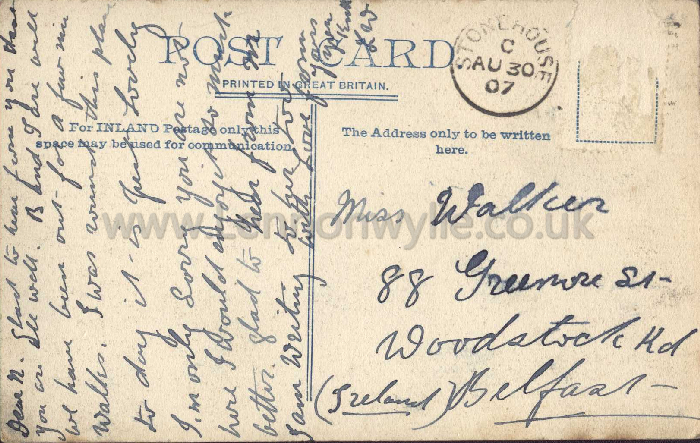 POST CARD
PRINTED IN GREAT BRITAIN.
STONEHOUSE
C
AU 30
07
For INLAND Postage only this
space may be used for communication.
The Address only to be written
here.
Miss Walker
88 Greenore St
Woodstock Rd
(Ireland) Belfast
Dear N. Glad to hear from you that
you are all well. B and I are well
we have been out for a few mi
walks. I was round this place
to day it is just lovely
I'm only sorry you are not
here I would enjoy it so much
better. glad to hear from
I am writing to
with love from
yours
www.Lennonwylie.co.uk